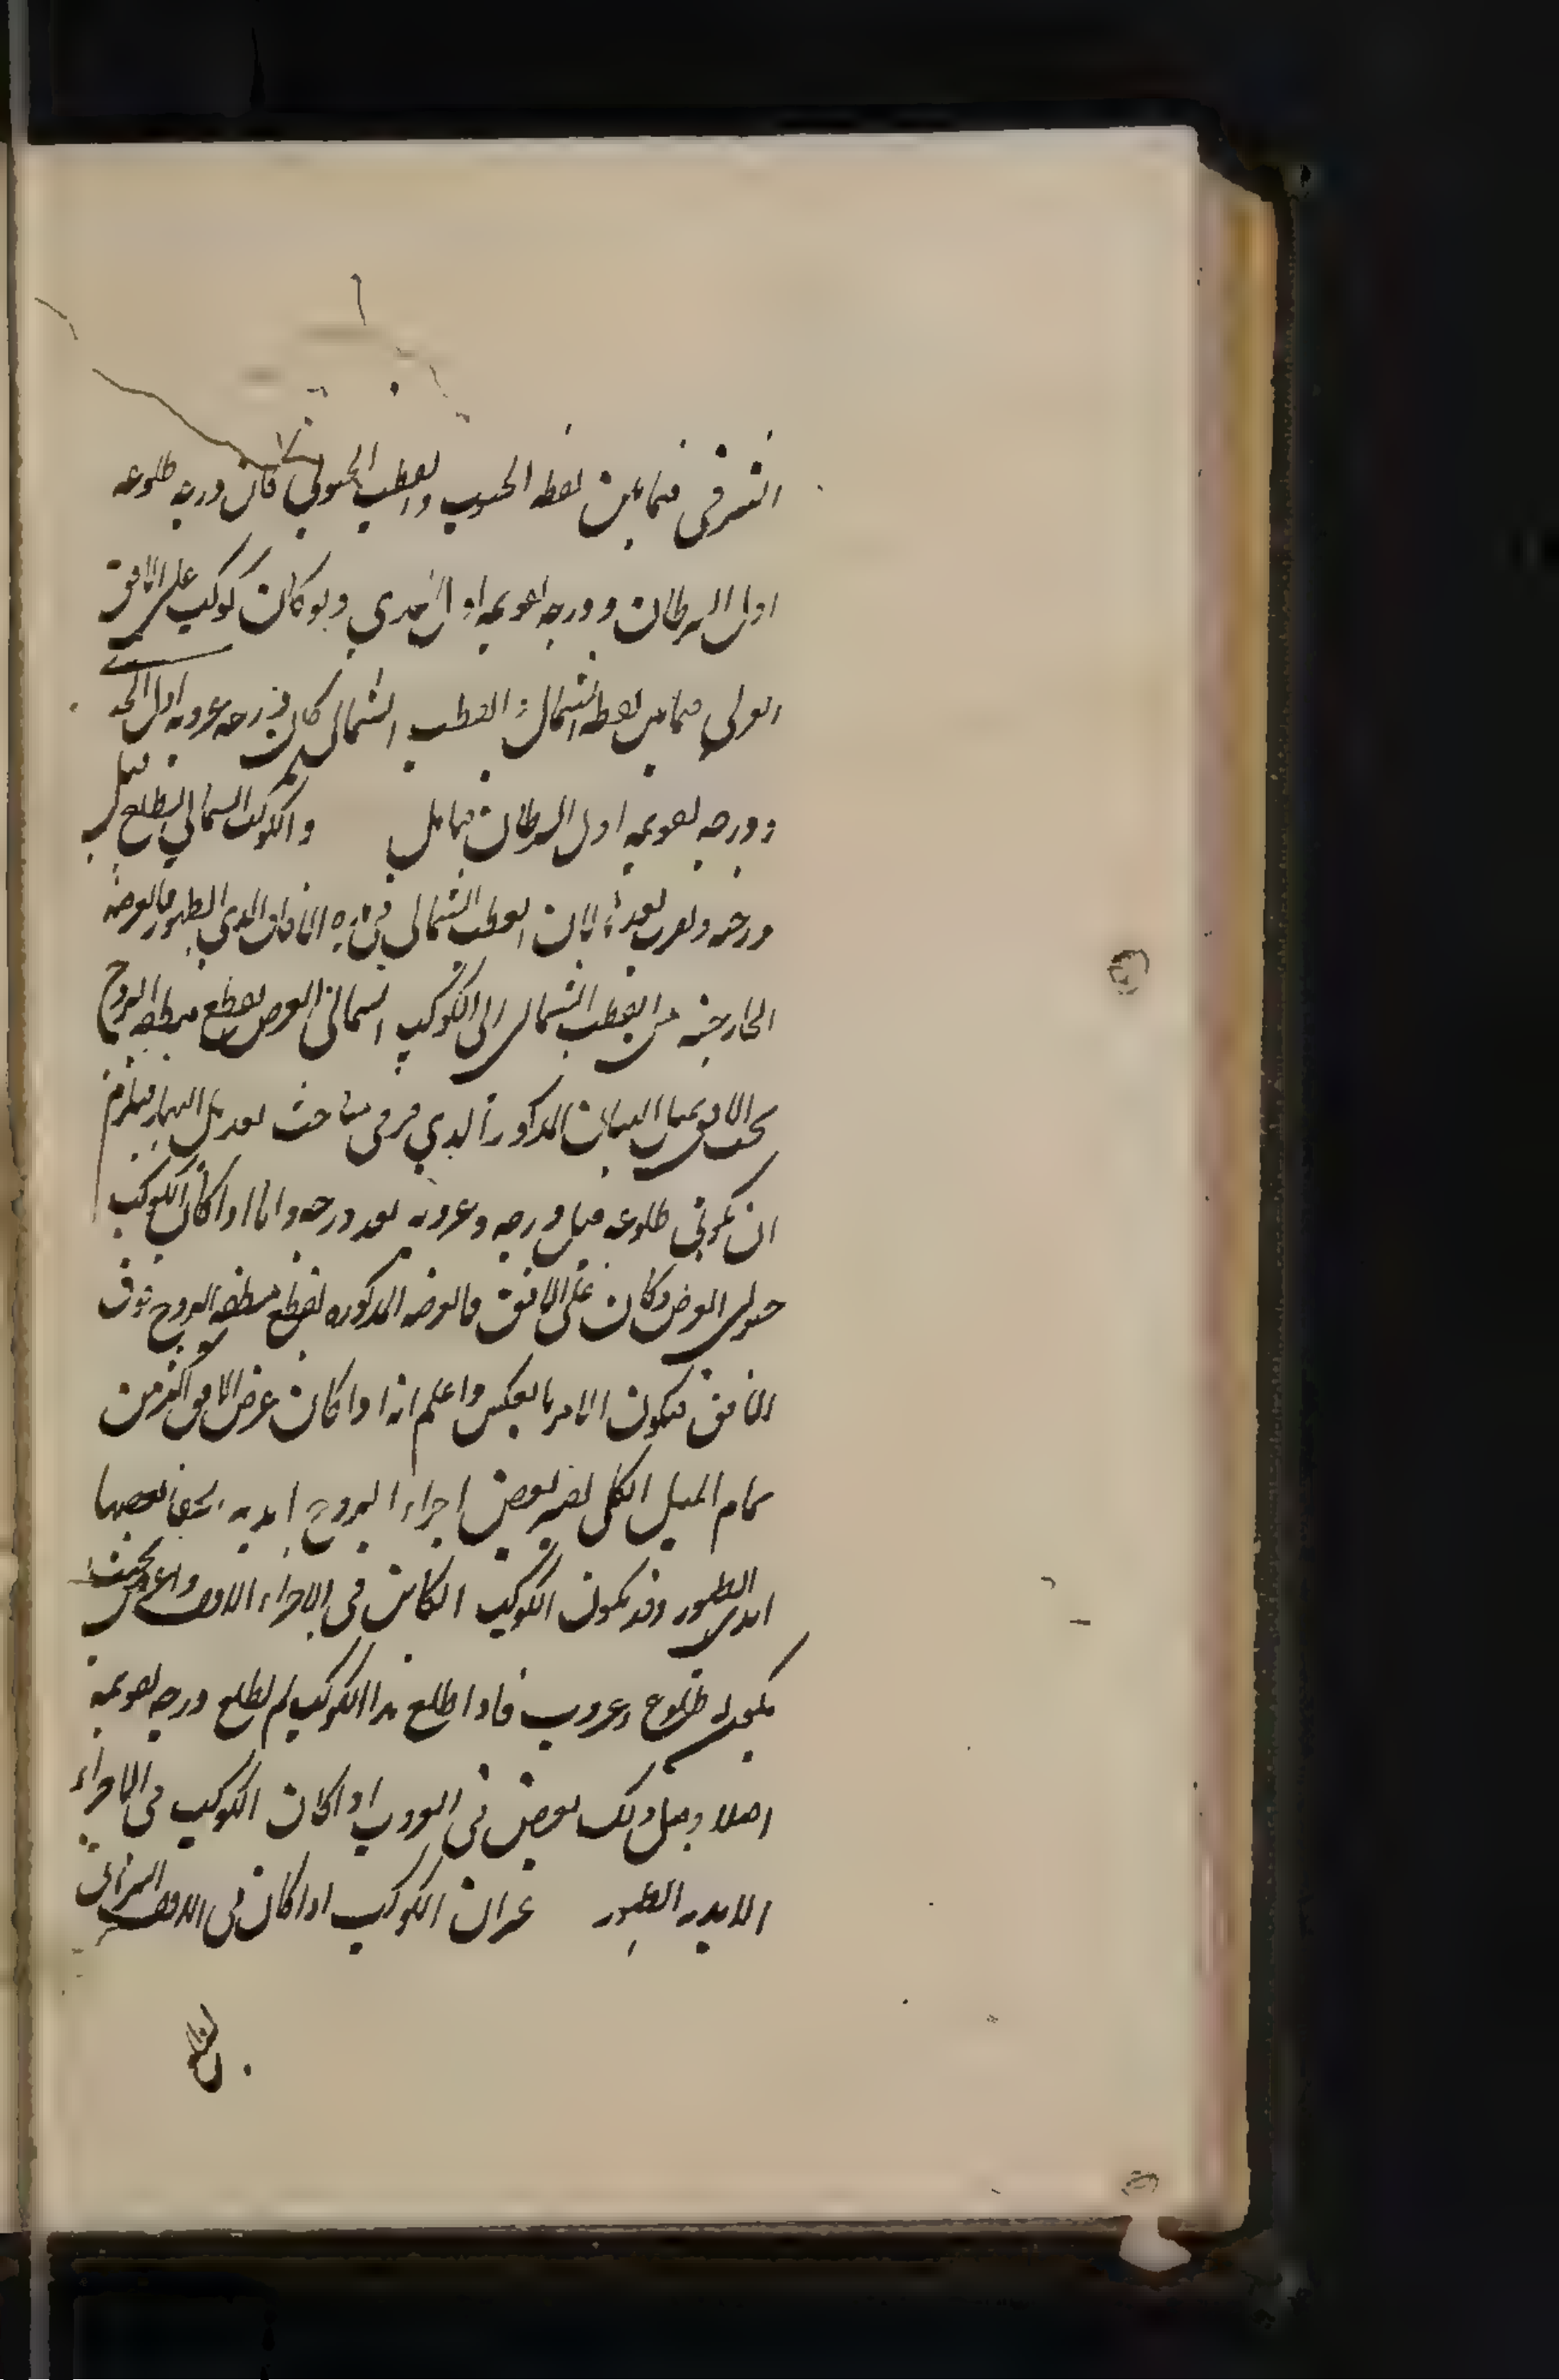 الشرقي فيما بين نقطه الجنوب والقطب الجنوبي كان درجه طلوعه
اول السرطان ودرجه تقويمه اول الجدي ولو كان كوكب على الافق
الغربي فيما بين نقطه الشمال والقطب الشمالي كان درجه غروبه اول الجدي
ودرجه تقويمه اول السرطان فيما بل والكوكب الشمالي يطلع قبل
درجته ويغرب بعدها لان القطب الشمالي في هذه الافاق ابدي الظهور فالعرضه
الخارجه من القطب الشمالي الى الكوكب الشمالي العرض يقطع منطقه البروج
تحت الافق بمثل البيان المذكور الذي مر في مباحث تعديل النهار فيلزم
ان يكون طلوعه قبل درجه وغروبه بعد درجه واما اذا كان الكوكب
جنوبي العرض وكان على الافق فالعرضه المذكوره يقطع منطقه البروج فوق
الافق فيكون الامر بالعكس واعلم انه اذا كان عرض الافق اكثر من
تمام الميل الكلي يصير بعض اجزاء البروج ابديه الخفا وبعضها
ابدي الظهور وقد يكون الكوكب الكائن في الاجزاء الابديه الخفا بحيث
يكون له طلوع وغروب فاذا طلع هذا الكوكب لم يطلع درجه تقويمه
اصلا ومثل ذلك يعرض في الغروب اذا كان الكوكب في الاجزاء
الابديه الظهور غير ان الكوكب اذا كان في الدرجه